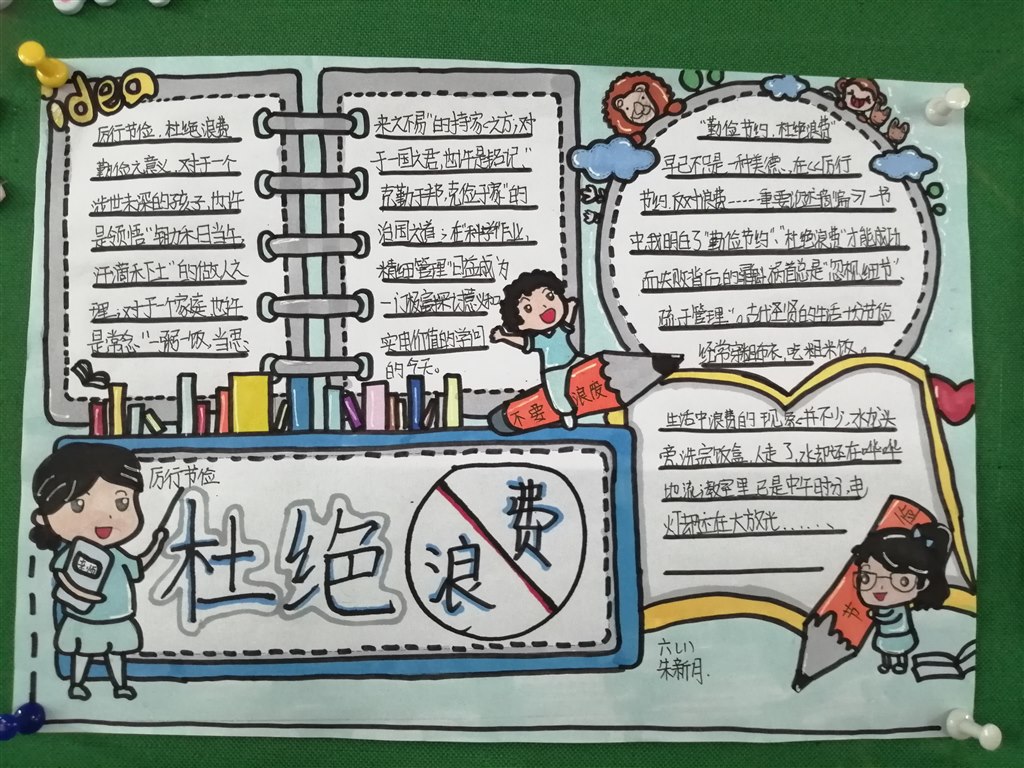 idea
厉行节俭,杜绝浪费
勤俭之意义,对于一个
涉世未深的孩子,也许
是领悟"锄禾日当午
汗滴禾下土"的做人之
理;对于一个家庭,也许
是常念"一粥一饭,当思
来之不易"的持家之方;对
于一国之君,也许是铭记"
克勤于邦,克俭于家"的
治国之道;在科学作业,
精细管理日益成为
一门极富探讨意义和
实用价值的学问
的今天。
不要浪费
"勤俭节约,杜绝浪费"
早已不只是一种美德、在厉行
节约,反对浪费----重要论述摘编 习一书
中,我明白了"勤俭节约","杜绝浪费"才能成功
而失败背后的祸首总是"忽视细节",
疏于管理"。古代圣贤的生活十分节俭
经常穿粗布衣,吃粗米饭。
生活中浪费的现象并不少.水龙头
旁,洗完饭盒,人走了,水却还在哗哗
地流;教室里,已是中午时分,电
灯却还在大放光......
厉行节俭
杜绝
浪费
节俭
六(1)
朱新月.